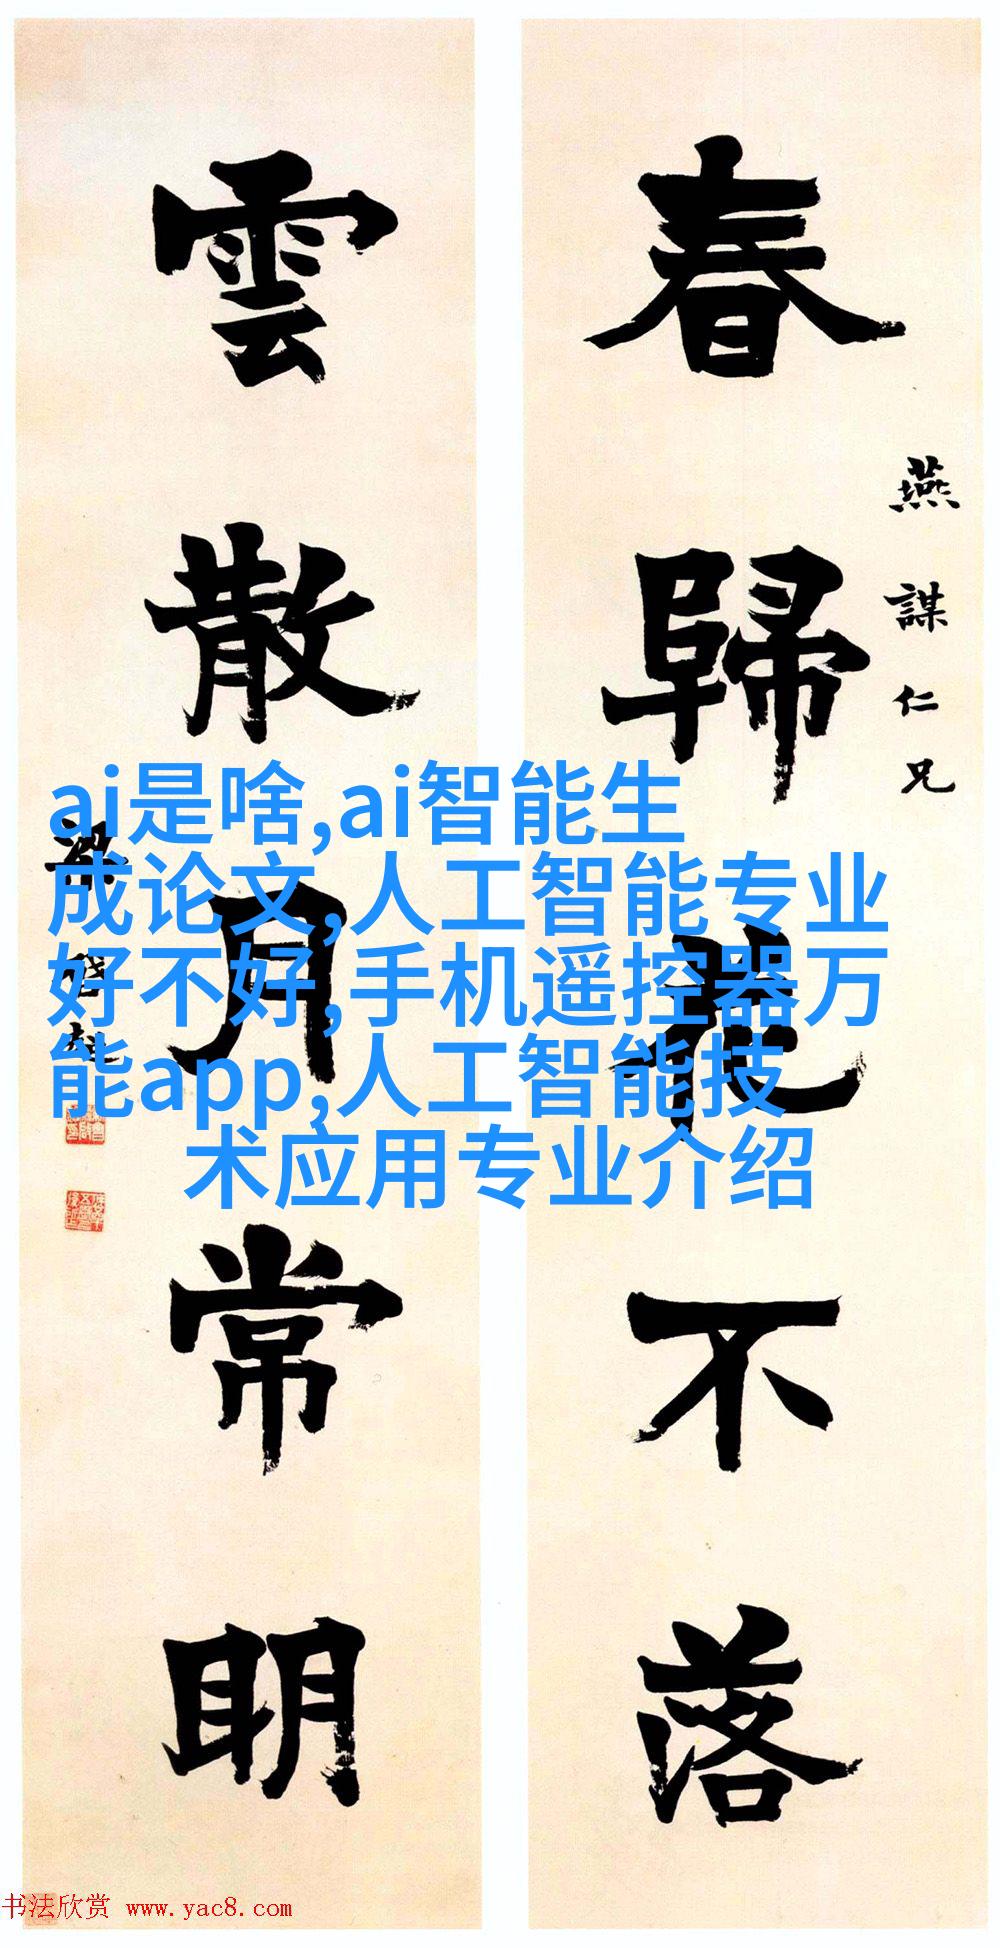 春歸花不落
燕謀仁兄
雲散月常明
梁啟超
ai是啥,ai智能生
成论文,人工智能专业
好不好,手机遥控器万
能app,人工智能技
术应用专业介绍
书法欣赏 www.yac8.com